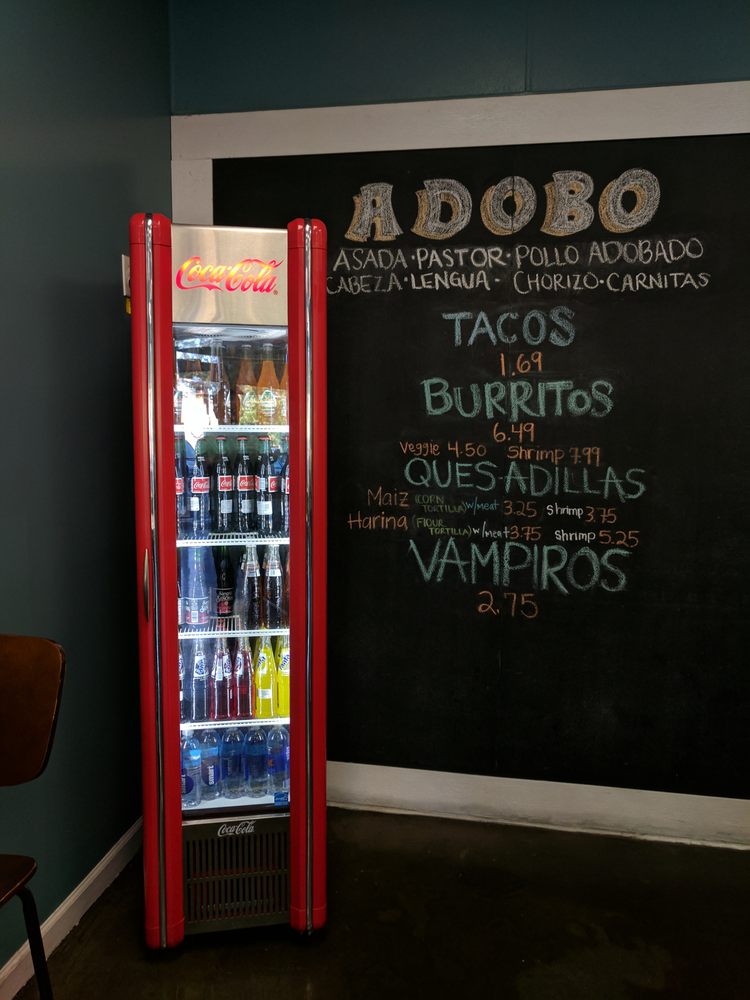 Coca-Cola
ADOBO
ASADA·PASTOR·POLLO ADOBADO
CABEZA·LENGUA· CHORIZO·CARNITAS
TACOS
1.69
BURRITOS
6.49
Veggie 4.50 Shrimp 7.99
QUESADILLAS
Maiz (CORN TORTILLA) w/meat 3.25 shrimp 3.75
Harina (FLOUR TORTILLA) w/meat 3.75 shrimp 5.25
VAMPIROS
2.75
Coca-Cola